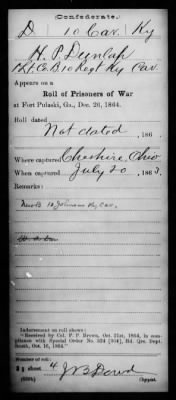 (Confederate.)
D 10 Cav. Ky
H. P. Dunlap
1 Lt Co. B 10 Regt Ky Cav.
Appears on a
Roll of Prisoners of War
at Fort Pulaski, Ga., Dec. 26, 1864.
Roll dated
Not dated, 186 .
Where captured Cheshire, Ohio
When captured July 20, 1863.
Remarks:
10 Johnson Ky Cav.
Indorsement on roll shows:
"Received by Col. P. P. Brown, Oct. 21st, 1864, in compliance with Special Order No. 254 [264], Hd. Qrs. Dept. South, Oct. 16, 1864."
Number of roll:
sheet 4
Copyist.